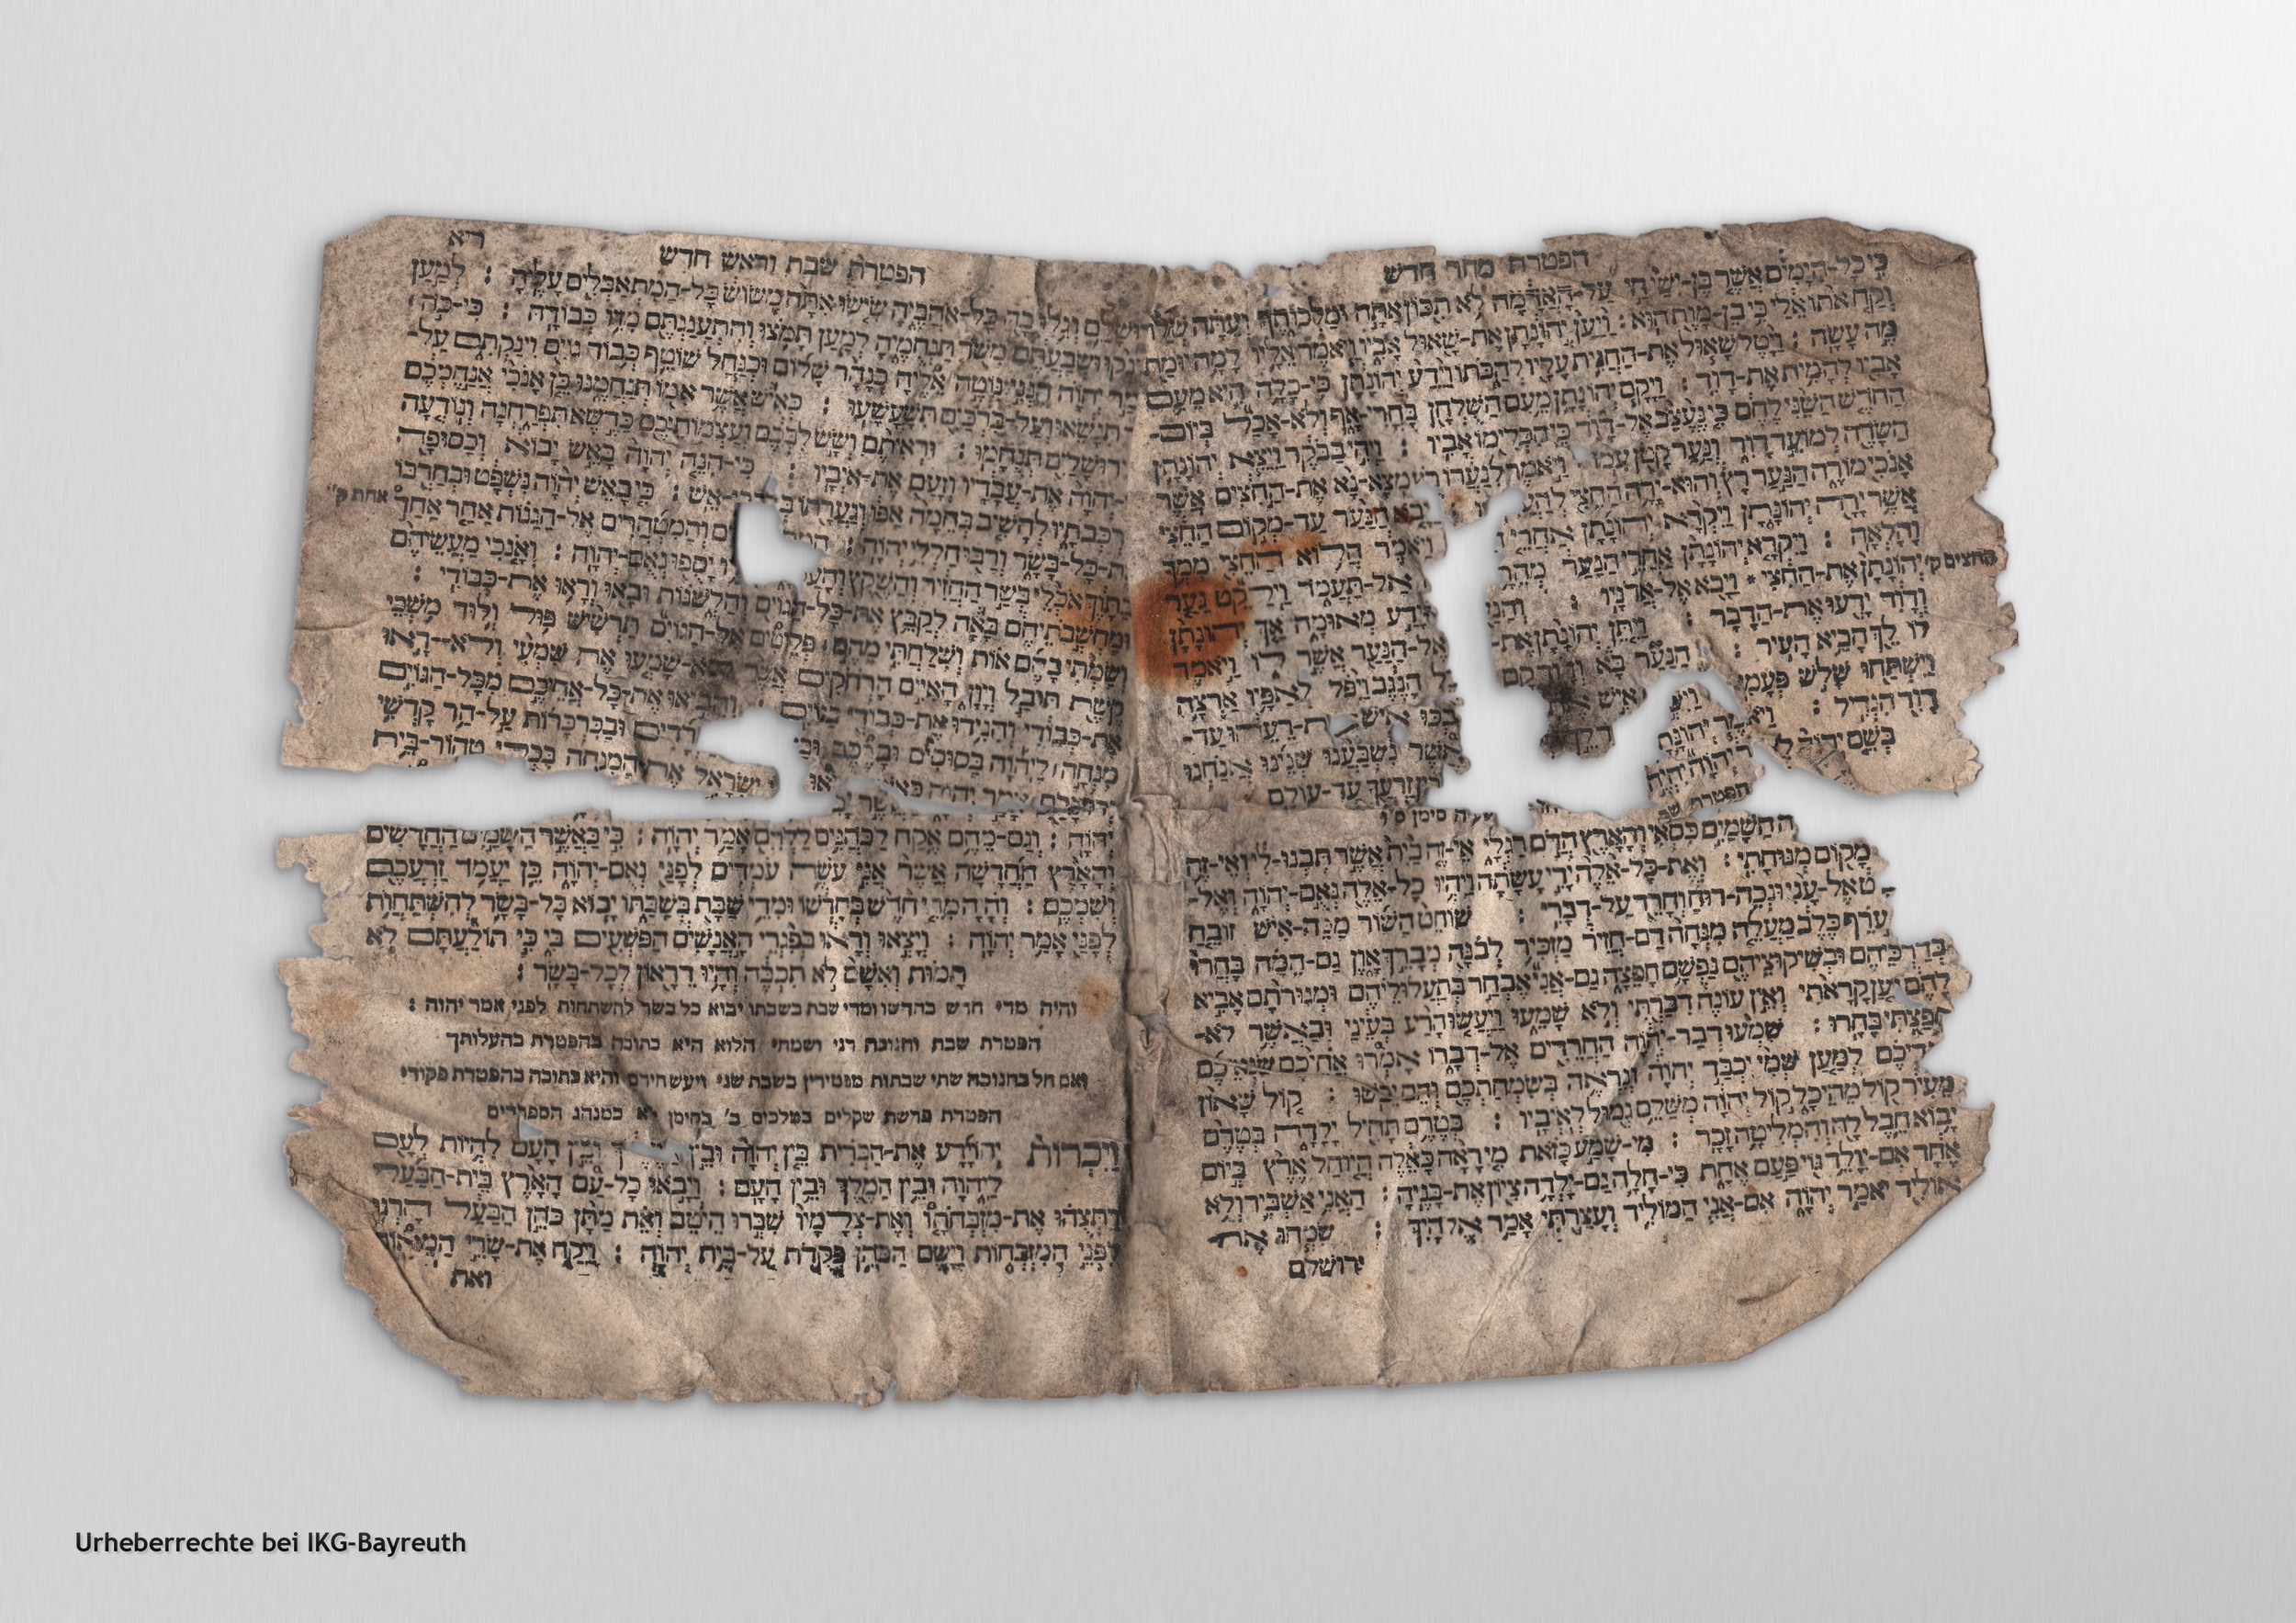 הפטרת מחר חדש
כי כל-הימים אשר בן-ישי חי על-האדמה לא תכון אתה ומלכותך ועתה שלח
וקח אתו אלי כי בן-מות הוא : ויען יהונתן את-שאול אביו ויאמר אליו למה יומת
מה עשה : ויטל שאול את-החנית עליו להכתו וידע יהונתן כי-כלה היא מעם
אביו להמית את-דוד : ויקם יהונתן מעם השלחן בחרי-אף ולא-אכל ביום-
החדש השני לחם כי נעצב אל-דוד כי הכלימו אביו : ויהי בבקר ויצא יהונתן
השדה למועד דוד ונער קטן עמו : ויאמר לנערו רץ מצא-נא את-החצים אשר
אנכי מורה הנער רץ והוא-ירה החצי יבא הנער עד-מקום החצי
אשר ירה יהונתן ויקרא יהונתן אחרי ויאמר הלוא החצי ממך
והלאה : ויקרא יהונתן אחרי הנער מהר אל-תעמד וילקט נער
יהונתן את-החצי * ויבא אל-אדניו : ידע מאומה אך יהונתן
החצים ק'
ודוד ידעו את-הדבר : ויתן יהונתן את- אל-הנער אשר לו ויאמר
לו לך הביא העיר : הנער בא ודוד קם הנגב ויפל לאפיו ארצה
וישתחו שלש איש בכו איש את-רעהו עד-
דוד הגדיל : ויאמר אשר נשבענו שנינו אנחנו
בשם יהוה יהוה יהיה זרעך עד-עולם
הפטרת סימן ס"ו
השמים כסאי והארץ הדם רגלי אי-זה בית אשר תבנו-לי ואי-זה
מקום מנוחתי : ואת-כל-אלה ידי עשתה ויהיו כל-אלה נאם-יהוה ואל-
אל-עני ונכה-רוח וחרד על-דברי : שוחט השור מכה-איש זובח
ערף כלב מעלה מנחה דם-חזיר מזכיר לבנה מברך און גם-המה בחרו
בדרכיהם ובשיקוציהם נפשם חפצה גם-אני אבחר בתעלוליהם ומגורתם אביא
להם יען קראתי ואין עונה דברתי ולא שמעו ויעשו הרע בעיני ובאשר לא-
חפצתי בחרו : שמעו דבר-יהוה החרדים אל-דברו אמרו אחיכם שנאיכם
למען שמי יכבד יהוה ונראה בשמחתכם והם יבשו : קול שאון
מעיר קול מהיכל קול יהוה משלם גמול לאיביו : בטרם תחיל ילדה בטרם
יבוא חבל לה והמליטה זכר : מי-שמע כזאת מי ראה כאלה היוחל ארץ ביום
אחד אם-יולד גוי פעם אחת כי-חלה גם-ילדה ציון את-בניה : האני אשביר ולא
אוליד יאמר יהוה אם-אני המוליד ועצרתי אמר אלהיך : שמחו את-
ירושלם
הפטרת שבת וראש חדש
רא
ירושלם וגילו בה כל-אהביה שישו אתה משוש כל-המתאבלים עליה : למען
תינקו ושבעתם משד תנחמיה למען תמצו והתענגתם מזיו כבודה : כי-כה
אמר יהוה הנני נוטה אליה כנהר שלום וכנחל שוטף כבוד גוים וינקתם על-
צד תנשאו ועל-ברכים תשעשעו : כאיש אשר אמו תנחמנו כן אנכי אנחמכם
ובירושלים תנחמו : וראיתם ושש לבכם ועצמותיכם כדשא תפרחנה ונודעה
יד-יהוה את-עבדיו וזעם את-איביו : כי-הנה יהוה באש יבוא וכסופה
מרכבתיו להשיב בחמה אפו וגערתו בלהבי-אש : כי באש יהוה נשפט ובחרבו
את-כל-בשר ורבו חללי יהוה : והמטהרים אל-הגנות אחר אחד
אחת ק'
בתוך אכלי בשר החזיר והשקץ יספו נאם-יהוה : ואנכי מעשיהם
ומחשבתיהם באה לקבץ את-כל-הגוים והלשנות ובאו וראו את-כבודי :
ושמתי בהם אות ושלחתי מהם פליטים אל-הגוים תרשיש פול ולוד משכי
קשת תובל ויון האיים הרחקים אשר לא-שמעו את שמעי ולא-ראו
את-כבודי והגידו את-כבודי בגוים : והביאו את-כל-אחיכם מכל-הגוים
מנחה ליהוה בסוסים וברכב ובכרכרות על-הר קדשי
ירושלם אמר יהוה כאשר ישראל את-המנחה בכלי טהור-בית
יהוה : וגם-מהם אקח לכהנים ללוים אמר יהוה : כי כאשר השמים החדשים
והארץ החדשה אשר אני עשה עמדים לפני נאם-יהוה כן יעמד זרעכם
ושמכם : והיה מדי-חדש בחדשו ומדי שבת בשבתו יבוא כל-בשר להשתחות
לפני אמר יהוה : ויצאו וראו בפגרי האנשים הפשעים בי כי תולעתם לא
תמות ואשם לא תכבה והיו דראון לכל-בשר :
והיה מדי חדש בחדשו ומדי שבת בשבתו יבוא כל בשר להשתחות לפני אמר יהוה :
הפטרת שבת וחנוכה רני ושמחי הלוא היא כתובה בהפטרת בהעלותך
ואם חל בחנוכה שתי שבתות מפטירין בשבת שני ויעש חירם והיא כתובה בהפטרת פקודי
הפטרת פרשת שקלים במלכים ב' בסימן יא כמנהג הספרדים
ויכרות יהוידע את-הברית בין יהוה ובין ובין העם להיות לעם
ליהוה ובין המלך ובין העם : ויבאו כל-עם הארץ בית-הבעל
ויתצהו את-מזבחתו ואת-צלמיו שברו היטב ואת מתן כהן הבעל הרגו
לפני המזבחות וישם הכהן פקדת על-בית יהוה : ויקח את-שרי המאות
ואת
Urheberrechte bei IKG-Bayreuth